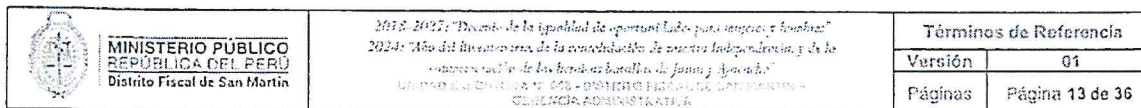 MINISTERIO PÚBLICO
REPÚBLICA DEL PERÚ
Distrito Fiscal de San Martín
2018-2027: "Decenio de la igualdad de oportunidades para mujeres y hombres"
2024: "Año del Bicentenario, de la consolidación de nuestra Independencia, y de la
conmemoración de las heroicas batallas de Junín y Ayacucho"
DISTRITO FISCAL DE SAN MARTIN -
GERENCIA ADMINISTRATIVA
Términos de Referencia
Versión 01
Páginas Página 13 de 36